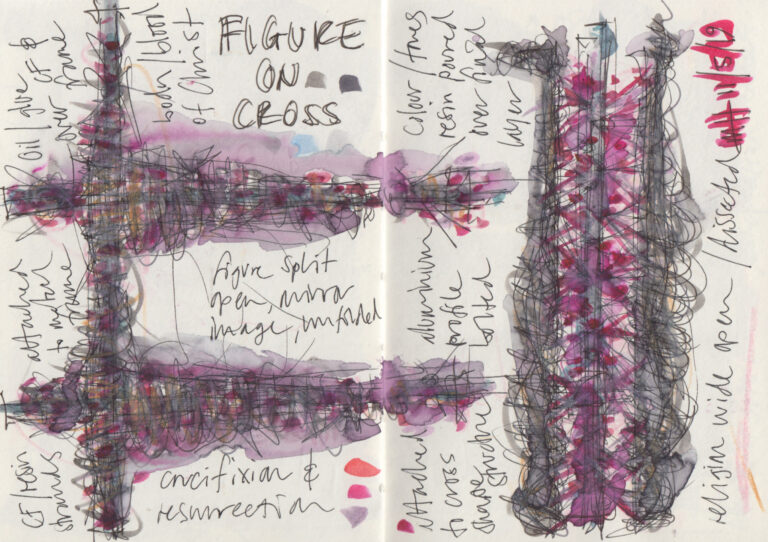 over frame
body/blood
of Christ
FIGURE
ON
CROSS
attached
figure split
open, mirror
image, unfolded
CF/resin
strands
crucifixion &
resurrection
Colour/tones
resin poured
over final
layer
aluminium
profile
bolted
Attached
to cross
shape
structure
religion wide open / dissected
11/5/19